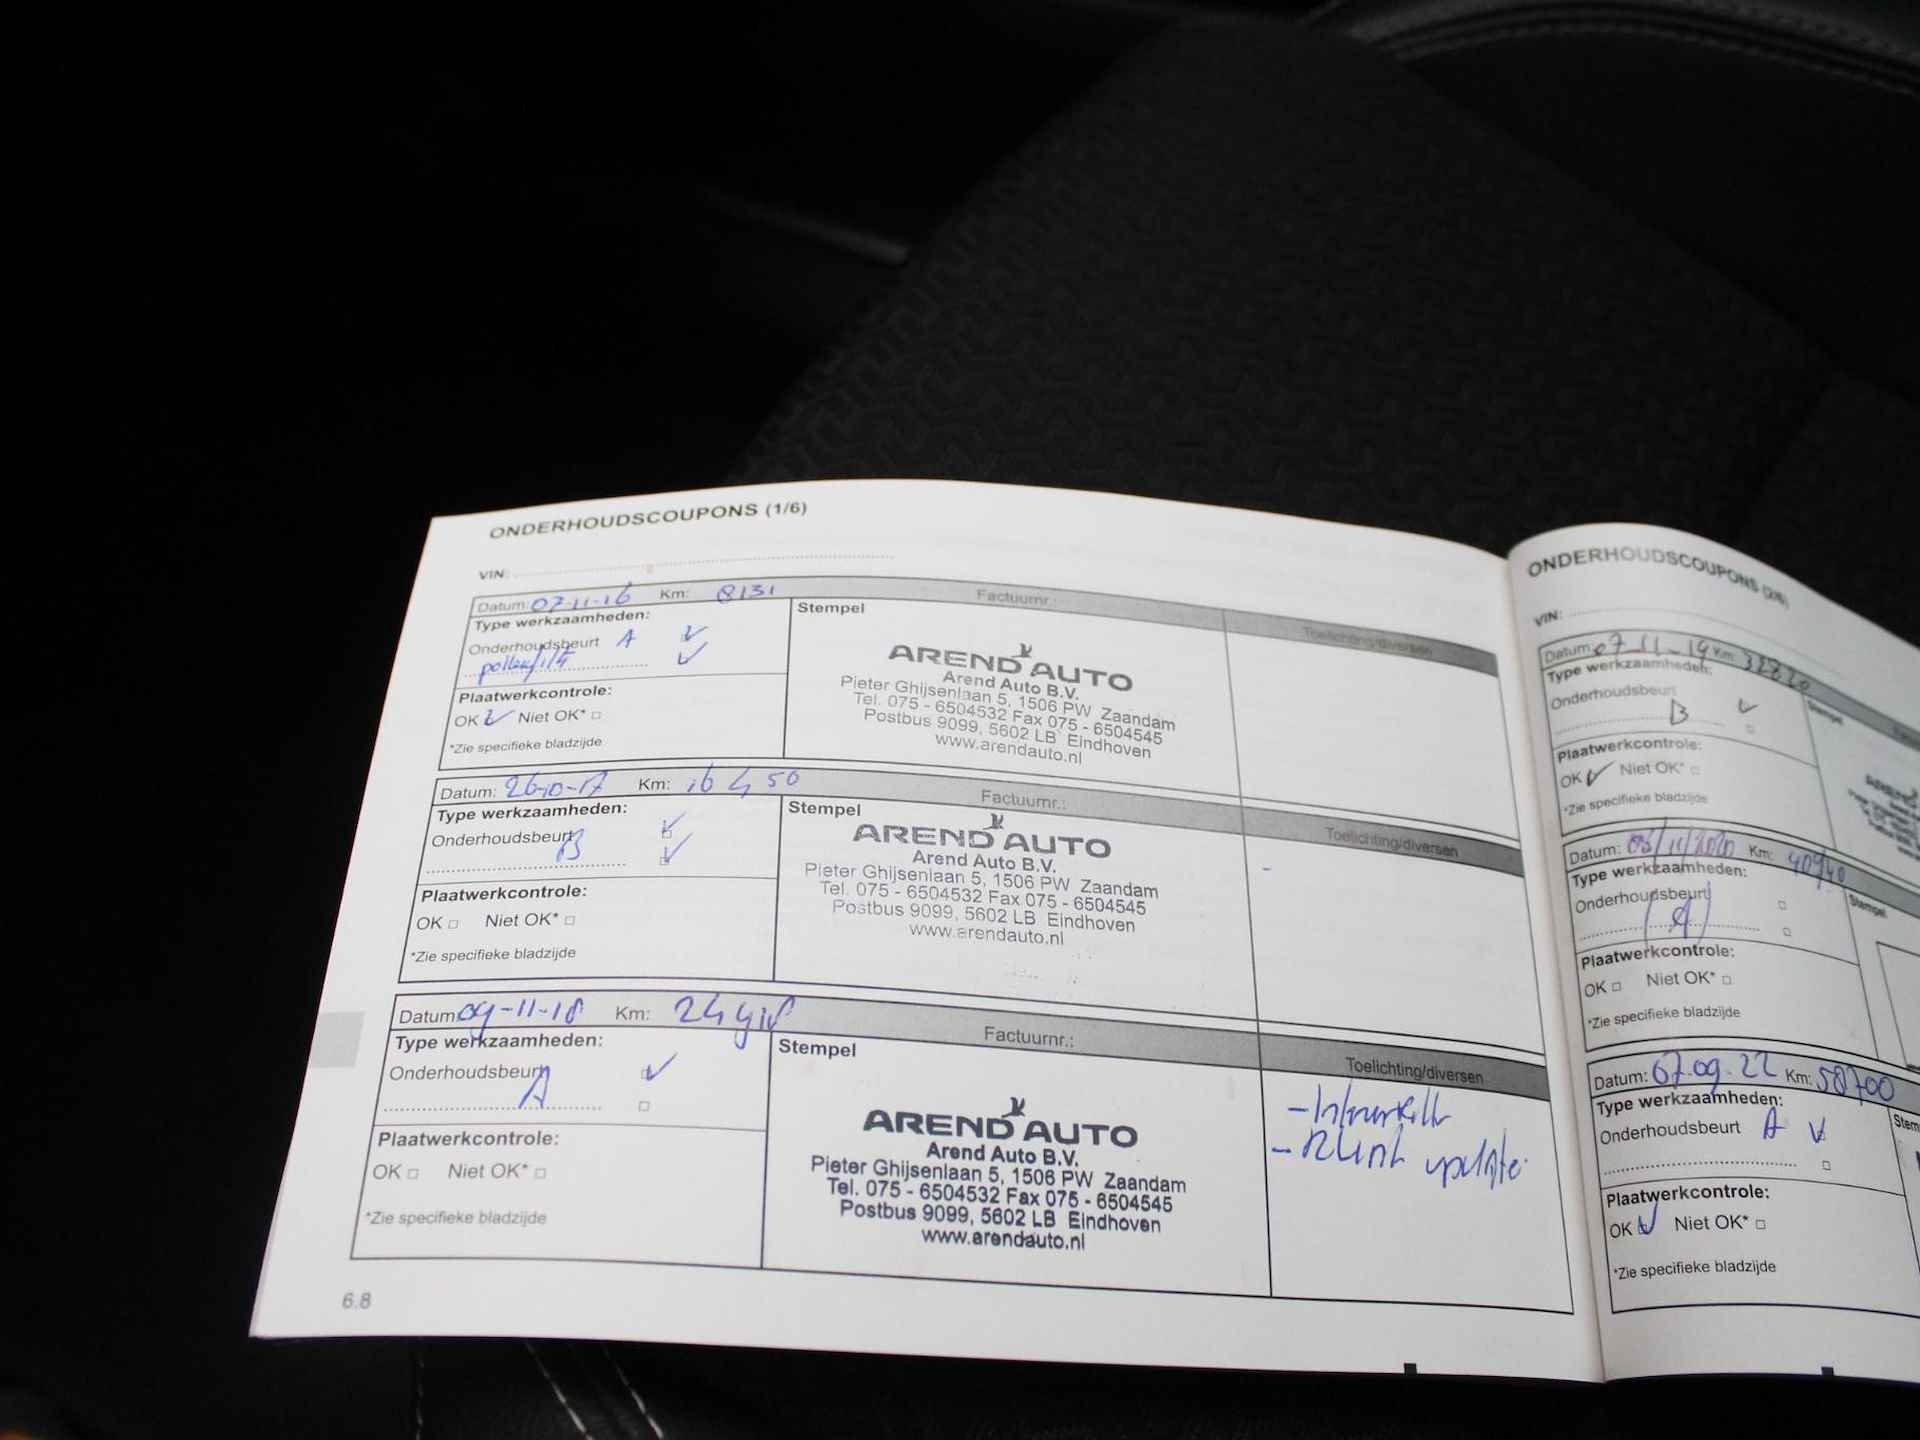 ONDERHOUDSCOUPONS (1/6)
VIN:
Datum: 07-11-16 Km: 8131 Factuurnr.: Toelichting/diversen
Type werkzaamheden:
Onderhoudsbeurt A
Plaatwerkcontrole:
OK Niet OK*
*Zie specifieke bladzijde
Stempel
AREND AUTO
Arend Auto B.V.
Pieter Ghijsenlaan 5, 1506 PW Zaandam
Tel. 075 - 6504532 Fax 075 - 6504545
Postbus 9099, 5602 LB Eindhoven
www.arendauto.nl
Datum: 26-10-17 Km: 16450 Factuurnr.: Toelichting/diversen
Type werkzaamheden:
Onderhoudsbeurt
B
Plaatwerkcontrole:
OK Niet OK*
*Zie specifieke bladzijde
Stempel
AREND AUTO
Arend Auto B.V.
Pieter Ghijsenlaan 5, 1506 PW Zaandam
Tel. 075 - 6504532 Fax 075 - 6504545
Postbus 9099, 5602 LB Eindhoven
www.arendauto.nl
-
Datum: 09-11-18 Km: Factuurnr.: Toelichting/diversen
Type werkzaamheden:
Onderhoudsbeurt
A
Plaatwerkcontrole:
OK Niet OK*
*Zie specifieke bladzijde
Stempel
AREND AUTO
Arend Auto B.V.
Pieter Ghijsenlaan 5, 1506 PW Zaandam
Tel. 075 - 6504532 Fax 075 - 6504545
Postbus 9099, 5602 LB Eindhoven
www.arendauto.nl
update
6.8
ONDERHOUDSCOUPONS (2/6)
VIN:
Datum: 07-11-19 Km: 32820
Type werkzaamheden:
Onderhoudsbeurt
B
Plaatwerkcontrole:
OK Niet OK*
*Zie specifieke bladzijde
Stempel
Datum: Km: 40940
Type werkzaamheden:
Onderhoudsbeurt
(A)
Plaatwerkcontrole:
OK Niet OK*
*Zie specifieke bladzijde
Stempel
Datum: 07.09.22 Km: 58700
Type werkzaamheden:
Onderhoudsbeurt A
Plaatwerkcontrole:
OK Niet OK*
*Zie specifieke bladzijde